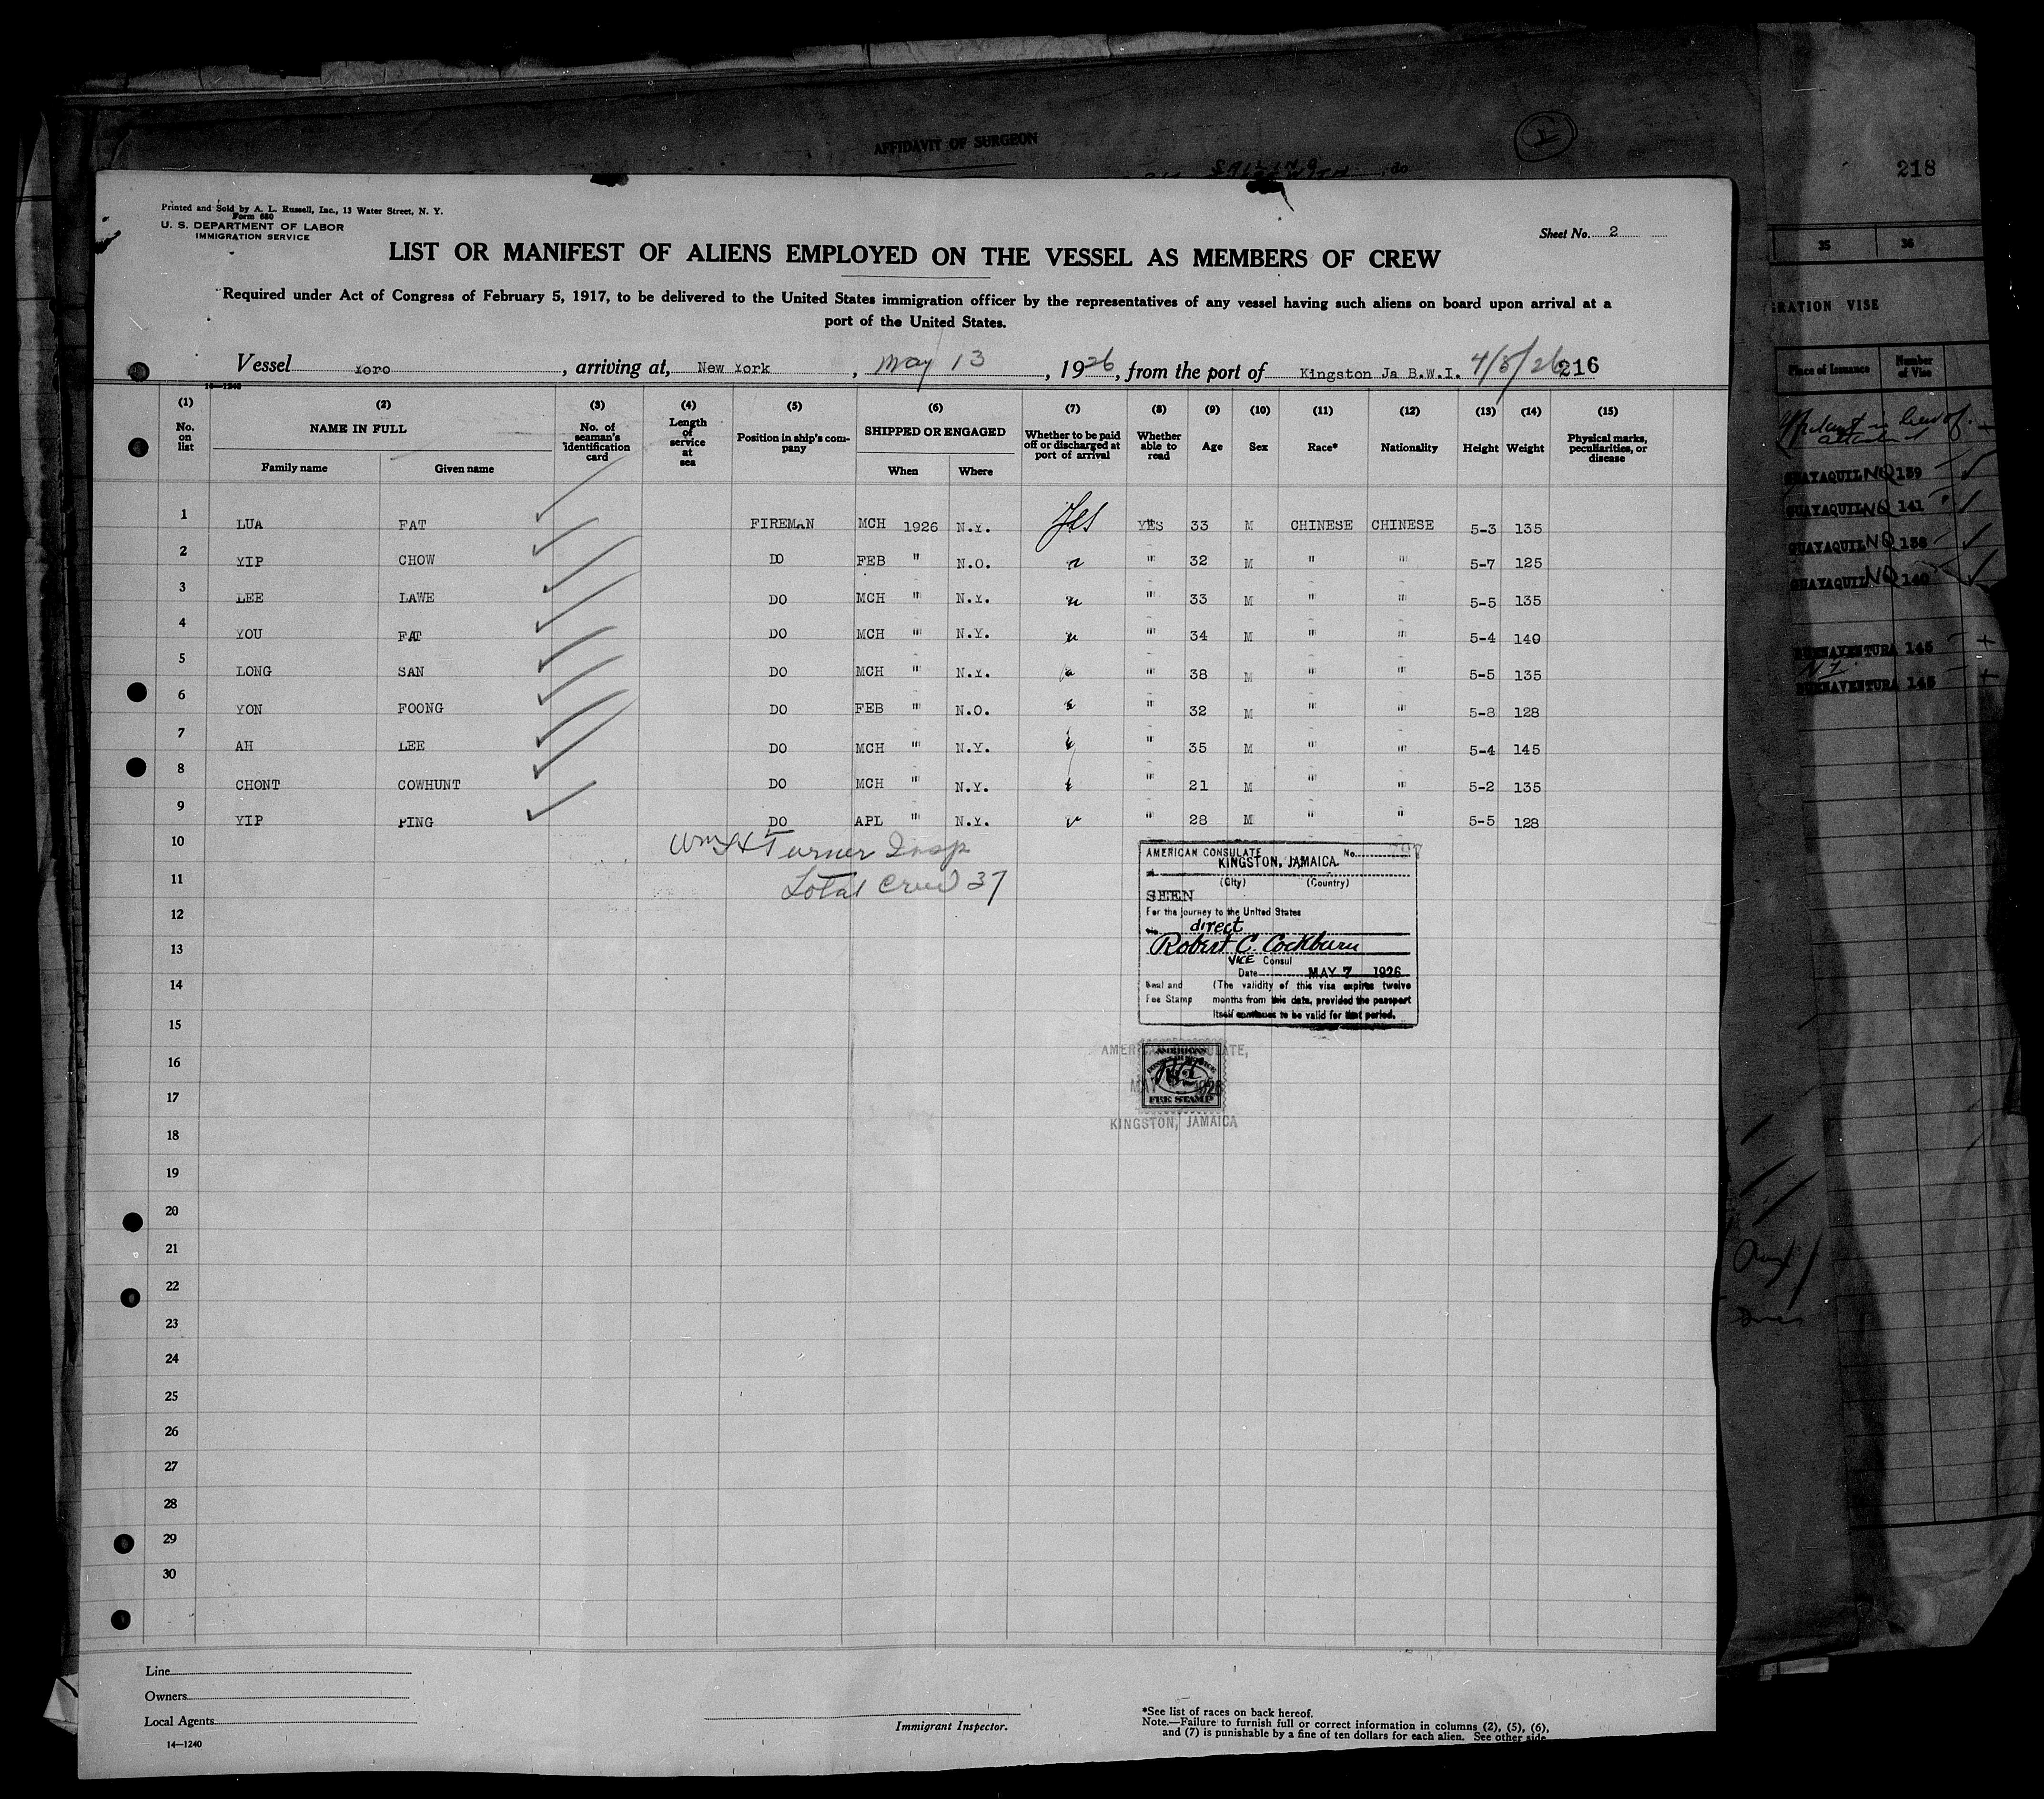 AFFIDAVIT OF SURGEON
218
Printed and Sold by A. L. Russell, Inc., 13 Water Street, N. Y.
Form 680
U. S. DEPARTMENT OF LABOR
IMMIGRATION SERVICE
Sheet No. 2
LIST OR MANIFEST OF ALIENS EMPLOYED ON THE VESSEL AS MEMBERS OF CREW
Required under Act of Congress of February 5, 1917, to be delivered to the United States immigration officer by the representatives of any vessel having such aliens on board upon arrival at a
port of the United States.
Vessel Yoro, arriving at, New York, May 13, 1926, from the port of Kingston Ja B.W.I. 4/8/26 216
14-1240
(1) No. on list (2) NAME IN FULL Family name Given name (3) No. of seaman's identification card (4) Length of service at sea (5) Position in ship's company (6) SHIPPED OR ENGAGED When Where (7) Whether to be paid off or discharged at port of arrival (8) Whether able to read (9) Age (10) Sex (11) Race* (12) Nationality (13) Height (14) Weight (15) Physical marks, peculiarities, or disease
1 LUA FAT FIREMAN MCH 1926 N.Y. Yes YES 33 M CHINESE CHINESE 5-3 135
2 YIP CHOW DO FEB " N.O. " " 32 M " " 5-7 125
3 LEE LAWE DO MCH " N.Y. " " 33 M " " 5-5 135
4 YOU FAT DO MCH " N.Y. " " 34 M " " 5-4 140
5 LONG SAN DO MCH " N.Y. " " 38 M " " 5-5 135
6 YON FOONG DO FEB " N.O. " " 32 M " " 5-8 128
7 AH LEE DO MCH " N.Y. " " 35 M " " 5-4 145
8 CHONT COWHUNT DO MCH " N.Y. " " 21 M " " 5-2 135
9 YIP PING DO APL " N.Y. " " 28 M " " 5-5 128
10 Wm H Turner Insp
11 Total Crew 37
12
13
14
15
16
17
18
19
20
21
22
23
24
25
26
27
28
29
30
AMERICAN CONSULATE No. 797
KINGSTON, JAMAICA.
(City) (Country)
SEEN
For the journey to the United States
via direct
Robert C. Cockburn
VICE Consul
Date MAY 7 1926
Seal and Fee Stamp
(The validity of this visa expires twelve
months from this date, provided the passport
itself continues to be valid for that period.
AMERICAN CONSULATE,
FEE STAMP
KINGSTON, JAMAICA
Line
Owners
Local Agents
14—1240
Immigrant Inspector.
*See list of races on back hereof.
Note.—Failure to furnish full or correct information in columns (2), (5), (6),
and (7) is punishable by a fine of ten dollars for each alien. See other side.
35 36
GRATION VISE
Place of Issuance Number of Vise
GUAYAQUIL NQ 139
GUAYAQUIL NQ 141
GUAYAQUIL NQ 138
GUAYAQUIL NQ 140
BUENAVENTURA 145
BUENAVENTURA 143